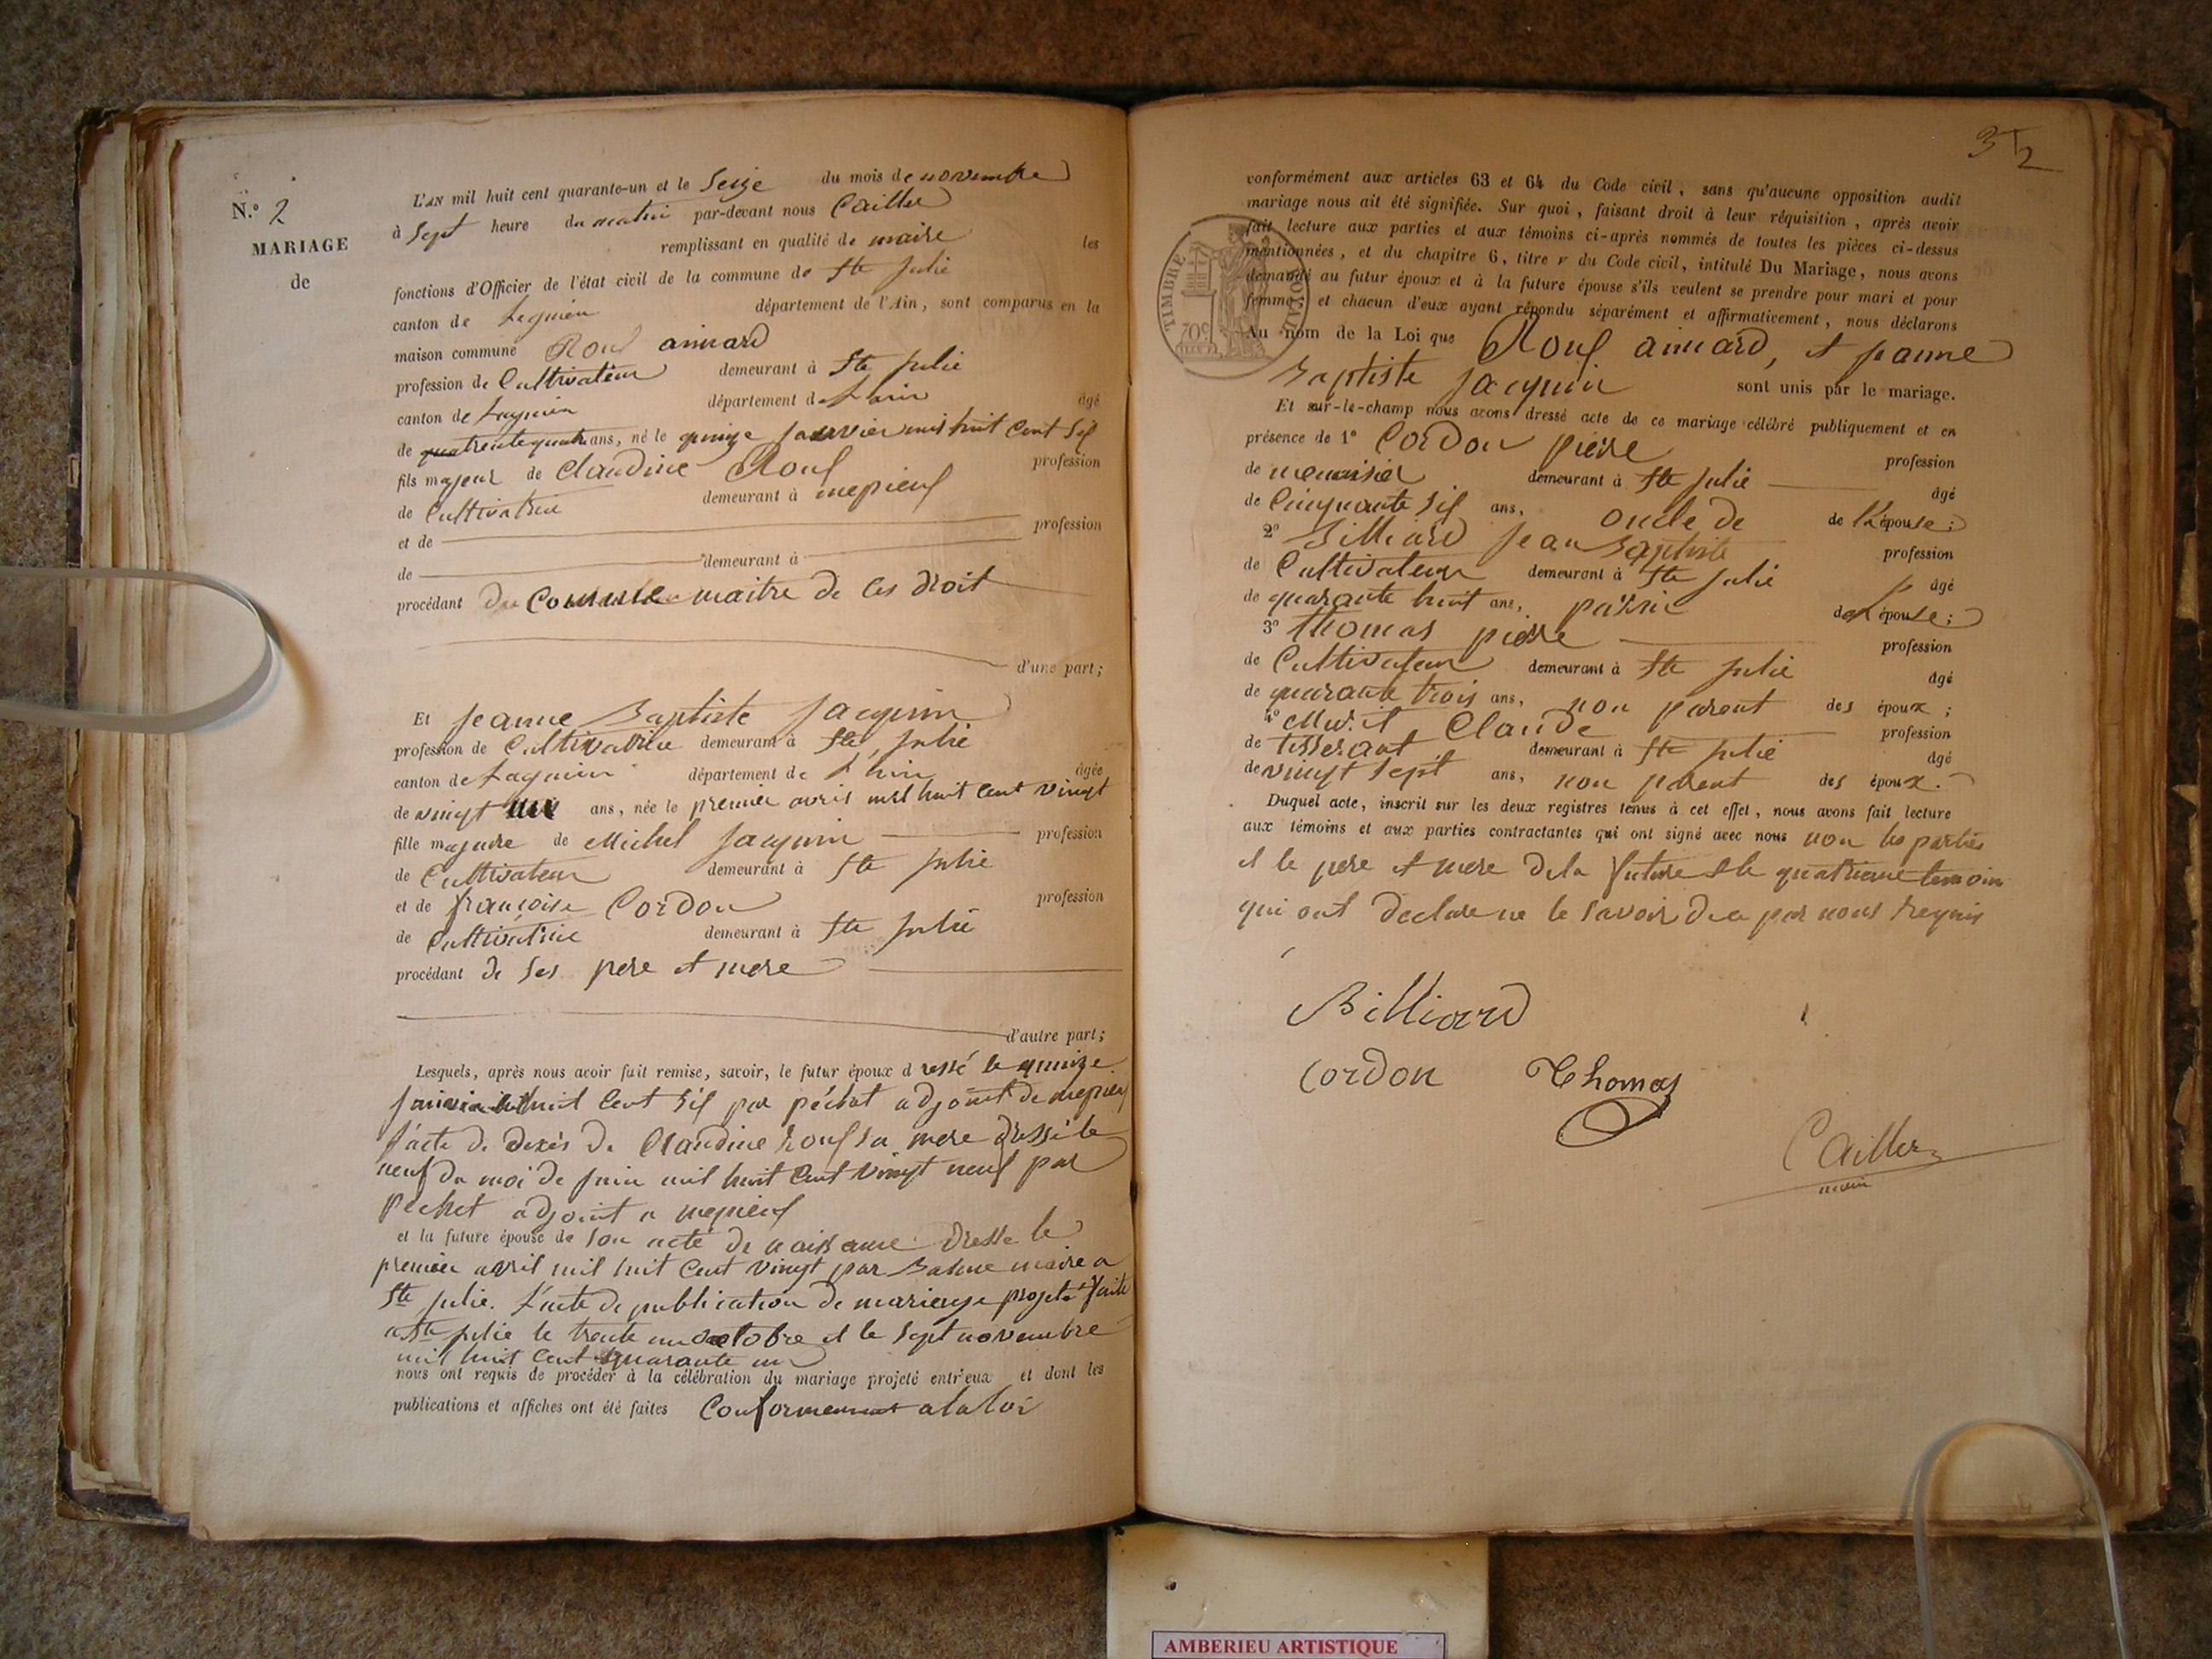 N.o 2
MARIAGE
de
L'AN mil huit cent quarante-un et le Seize du mois de novembre
à Sept heure du matin par-devant nous Cailler
remplissant en qualité de maire les
fonctions d'Officier de l'état civil de la commune de Ste Julie
canton de Lagnieu département de l'Ain, sont comparus en la
maison commune Rouf aimard
profession de Cultivateur demeurant à Ste Julie
canton de Lagnieu département de L'ain âgé
de trente quatre ans, né le quinze janvier mil huit Cent Six
fils majeur de Claudine Rouf profession
de Cultivatrice demeurant à mepieux
et de profession
de demeurant à
procédant Comme maitre de ces droit
d'une part;
Et Jeanne Baptiste Jacquin
profession de Cultivatrice demeurant à Ste Julie
canton de Lagnieu département de L'ain âgée
de vingt ans, née le premier avril mil huit Cent vingt
fille majeure de Michel Jacquin profession
de Cultivateur demeurant à Ste Julie
et de françoise Cordon profession
de Cultivatrice demeurant à Ste Julie
procédant de Ses pere et mere
d'autre part;
Lesquels, après nous avoir fait remise, savoir, le futur époux dressé le quinze
huit Cent Six par péchet adjoint de mepieux
l'acte de décès de Claudine Rouf sa mere dressé le
neuf du moi de juin mil huit Cent vingt neuf par
Pechet adjoint a mepieux
et la future épouse de son acte de naissance dressé le
premier avril mil huit Cent vingt par maire a
Ste Julie. L'acte de publication de mariage projeté faite
a Ste Julie le trente un octobre et le Sept novembre
mil huit Cent quarante un
nous ont requis de procéder à la célébration du mariage projeté entr'eux et dont les
publications et affiches ont été faites Conformement a la loi
3 2
conformément aux articles 63 et 64 du Code civil, sans qu'aucune opposition audit
mariage nous ait été signifiée. Sur quoi, faisant droit à leur réquisition, après avoir
fait lecture aux parties et aux témoins ci-après nommés de toutes les pièces ci-dessus
mentionnées, et du chapitre 6, titre v du Code civil, intitulé Du Mariage, nous avons
demandé au futur époux et à la future épouse s'ils veulent se prendre pour mari et pour
femme; et chacun d'eux ayant répondu séparément et affirmativement, nous déclarons
TIMBRE ROYAL
70c
Au nom de la Loi que Rouf aimard, et Jeanne
Baptiste Jacquin sont unis par le mariage.
Et sur-le-champ nous avons dressé acte de ce mariage célébré publiquement et en
présence de 1o Cordon pierre profession
de menuisier demeurant à Ste Julie âgé
de Cinquante Six ans, oncle de de L'épouse;
2o Billiard Jean Baptiste profession
de Cultivateur demeurant à Ste Julie âgé
de quarante huit ans, de L'épouse;
3o Thomas pierre profession
de Cultivateur demeurant à Ste Julie âgé
de quarante trois ans, non parent des époux;
4o Claude profession
de tisserant demeurant à Ste Julie âgé
de vingt Sept ans, non parent des époux.
Duquel acte, inscrit sur les deux registres tenus à cet effet, nous avons fait lecture
aux témoins et aux parties contractantes qui ont signé avec nous non les parties
et le pere et mere de la future et le quatrieme temoin
qui ont declare ne le Savoir de ce par nous requis
Billiard
Cordon Thomas
Cailler
maire
AMBERIEU ARTISTIQUE